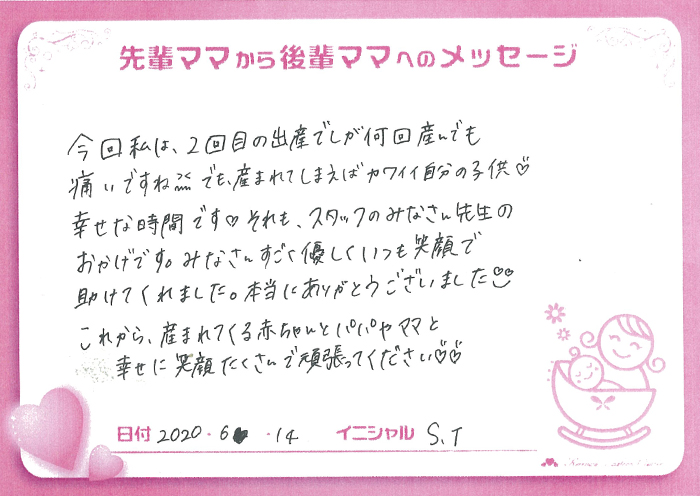 先輩ママから後輩ママへのメッセージ
今回私は、2回目の出産でしが何回産んでも
痛いですね でも、産まれてしまえばカワイイ自分の子供♡
幸せな時間です♡それも、スタッフのみなさん先生の
おかげです。みなさんすごく優しくいつも笑顔で
助けてくれました。本当にありがとうございました
これから、産まれてくる赤ちゃんとパパやママと
幸せに笑顔たくさんで頑張ってください♡♡
日付 2020・6・14 イニシャル S.T